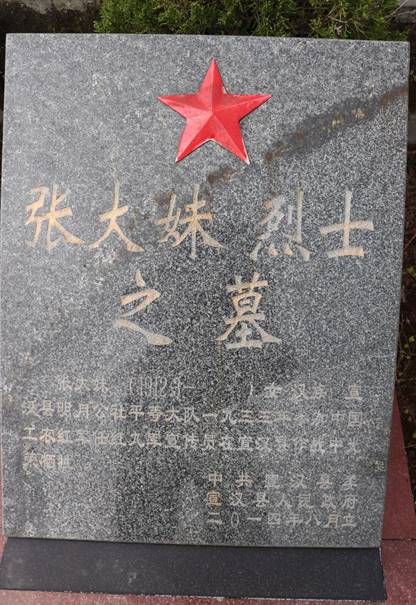 张大妹 烈士
之墓
张大妹 (1912.3— )女 汉族 宣
汉县明月公社平等大队一九三三年参加中国
工农红军任红九军宣传员在宣汉县作战中光
荣牺牲
中共宣汉县委
宣汉县人民政府
二〇一四年八月立